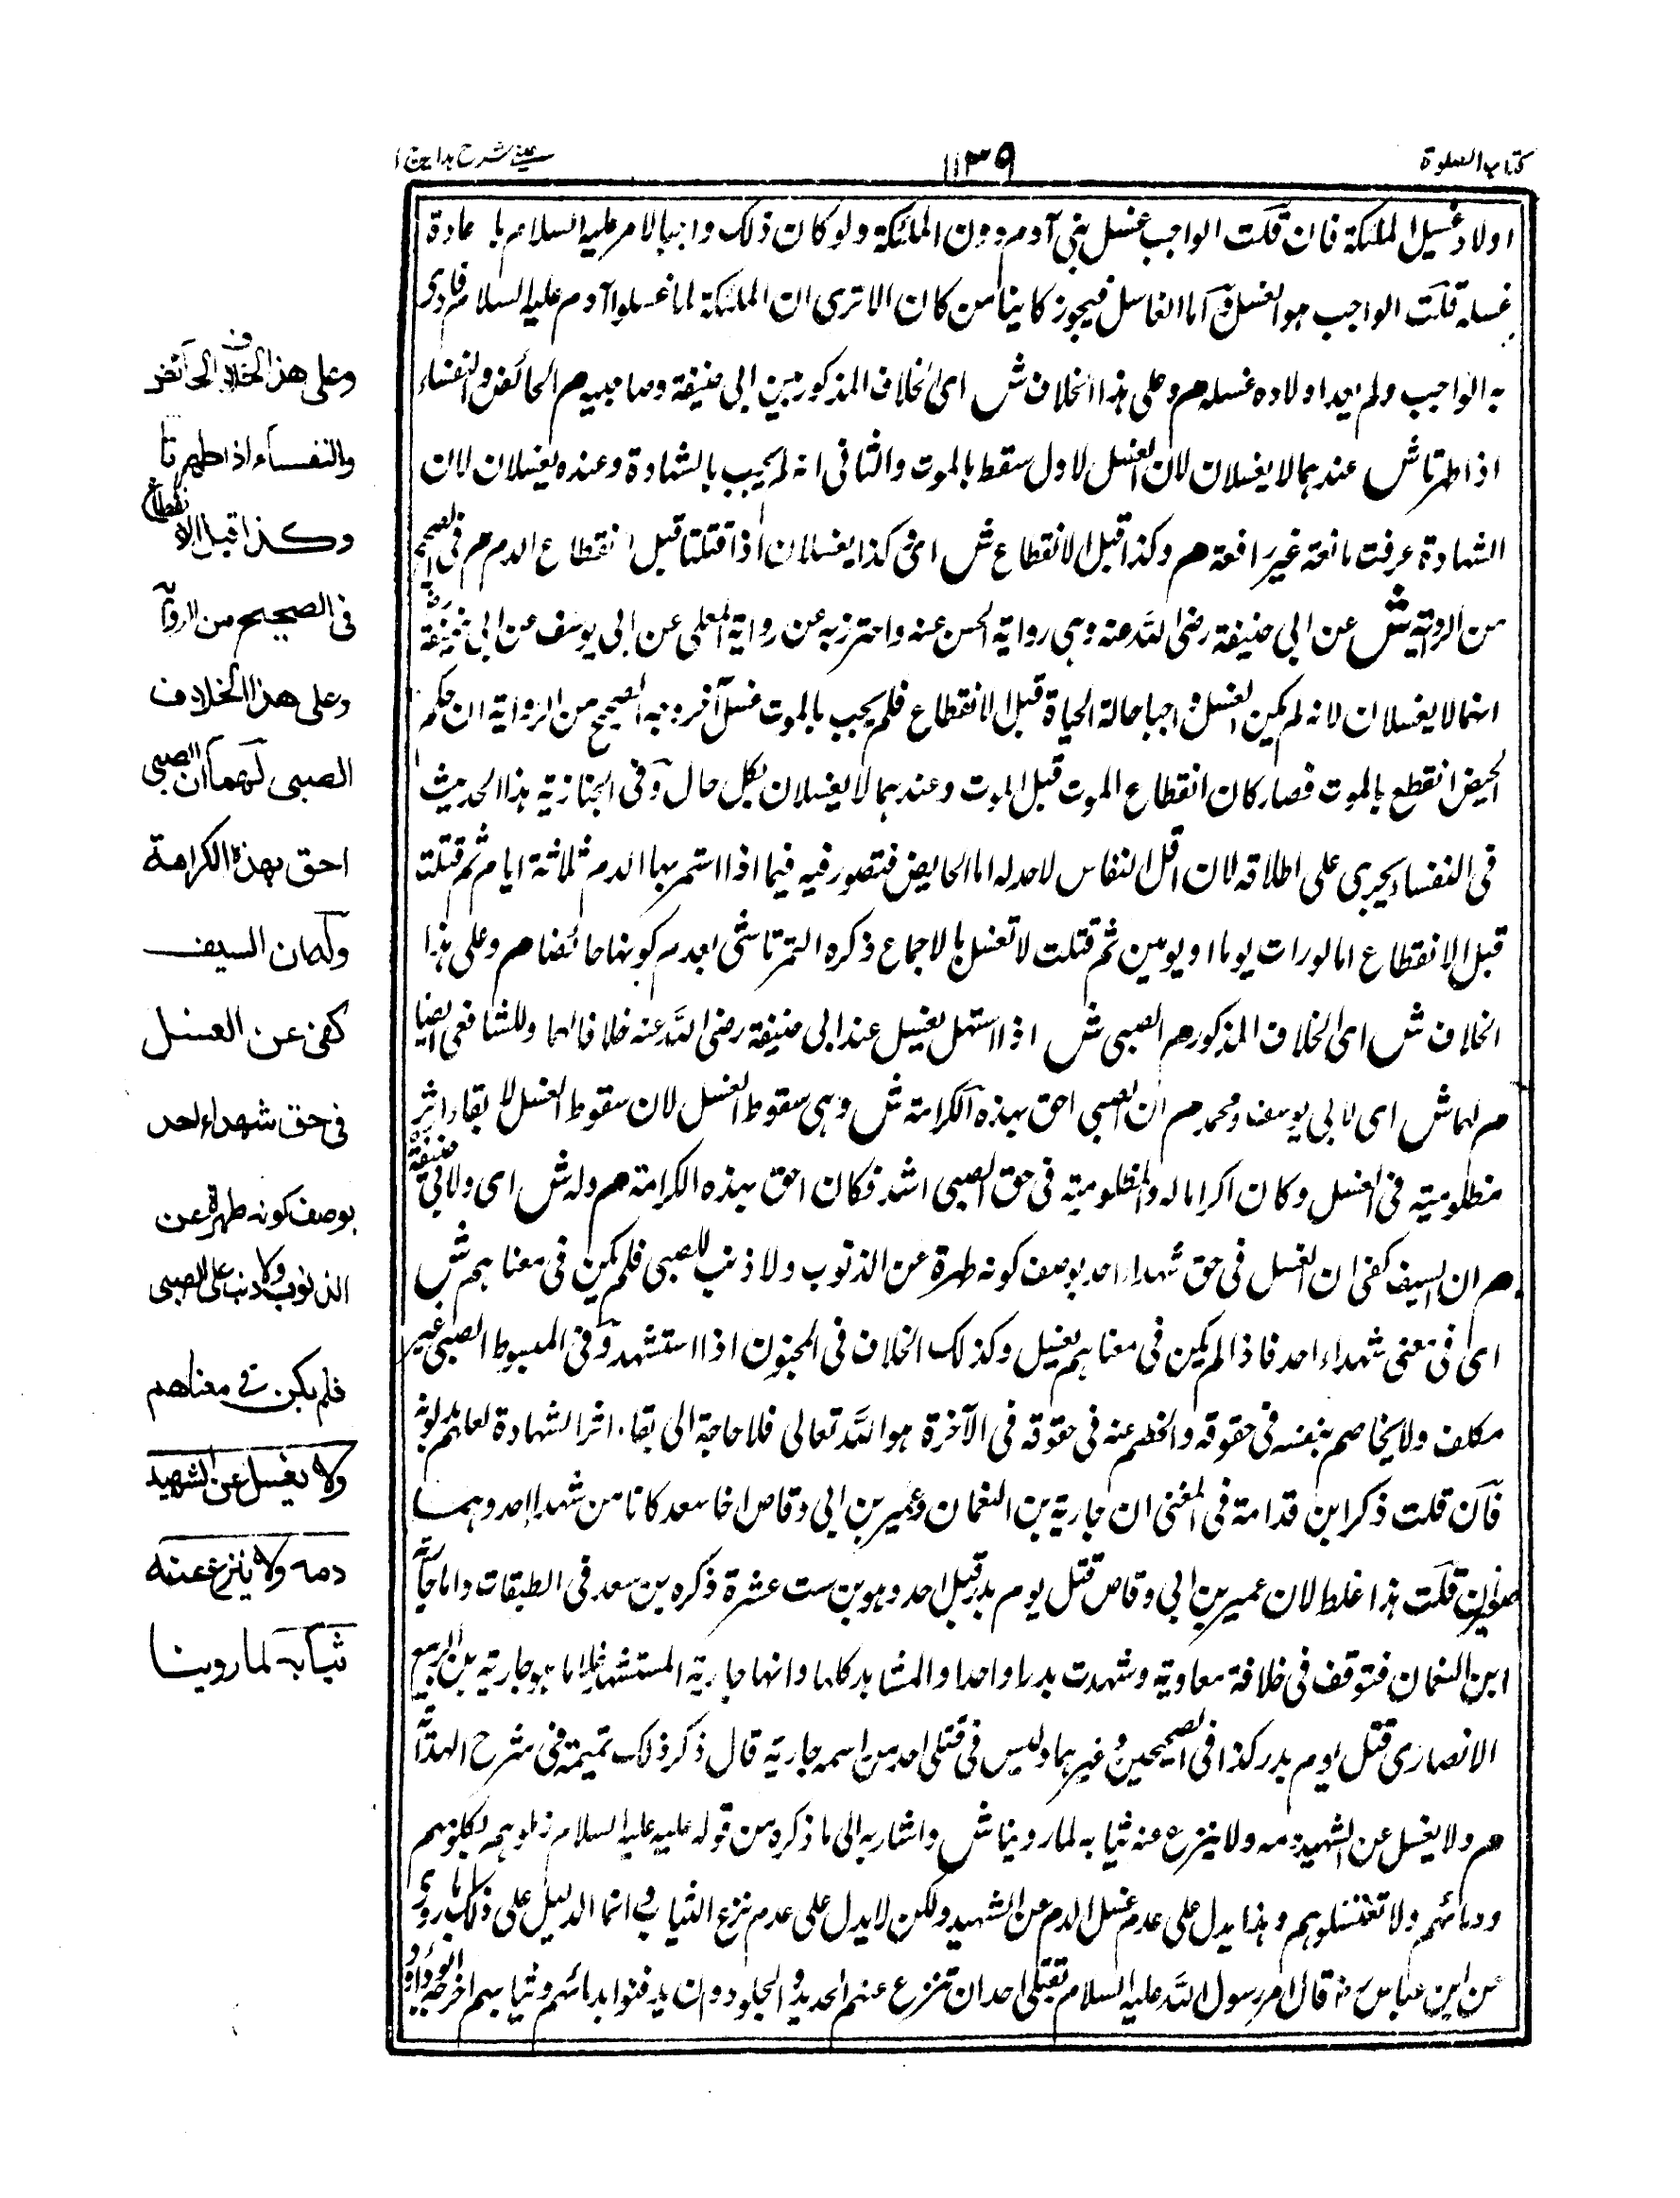 كتاب الصلوة
١١٣٩
عيني شرح هداية ج ١
اولاد غسيل الملئكة فان قلت الواجب غسل بني آدم دون الملئكة ولو كان ذلك واجبا لامر عليه السلام با عادة
غسله قلت الواجب هو الغسل واما الغاسل فيجوز كاينا من كان الا ترى ان الملئكة لما غسلوا آدم عليه السلام فادى
به الواجب ولم يعد اولاده غسله هم وعلى هذا الخلاف ش اى الخلاف المذكور بين ابي حنيفة وصاحبيه هم الحائض والنفساء
اذا طهرتا ش عندهما لا يغسلان لان الغسل لاول سقط بالموت والثاني انه لم يجب بالشهادة وعنده يغسلان لان
الشهادة عرفت مانعة غير رافعة هم وكذا قبل الانقطاع ش اى كذا يغسلان اذا قتلتا قبل انقطاع الدم هم في الصحيح
من الرواية ش عن ابي حنيفة رضى الله عنه وهى رواية الحسن عنه واحترز به عن رواية المعلى عن ابى يوسف عن ابي حنيفة رض
انهما لا يغسلان لانه لم يكن الغسل واجبا حالة الحياة قبل الانقطاع فلم يجب بالموت غسل آخر وجه الصحيح من الرواية ان حكم
الحيض انقطع بالموت فصار كان انقطاع الموت قبل الموت وعندهما لا يغسلان بكل حال وفى الخبازية هذا الحديث
في النفساء يجرى على اطلاقه لان اقل النفاس لاحد له اما الحايض فتصور فيه فيما اذا استمر بها الدم ثلاثة ايام ثم قتلت
قبل الانقطاع اما لورات يوما او يومين ثم قتلت لا تغسل بالاجماع ذكره التمرتاشي لعدم كونها حائضا هم وعلى هذا
الخلاف ش اى الخلاف المذكور هم الصبى ش اذا استهل يغسل عند ابى حنيفة رضى الله عنه خلافا لهما وللشافعى ايضا
هم لهما ش اى لابي يوسف ومحمد هم ان الصبى احق بهذه الكرامة ش وهى سقوط الغسل لان سقوط الغسل لا بقاء اثر
مظلوميته في الغسل وكان اكراما له والمظلومية في حق الصبى اشد فكان احق بهذه الكرامة هم وله ش اى ولابي حنيفة
هم ان السيف كفى ان الغسل في حق شهداء احد بوصف كونه طهرة عن الذنوب ولا ذنب للصبى فلم يكن في معناهم ش
اى في معنى شهداء احد فاذا لم يكن في معناهم يغسل وكذلك الخلاف في المجنون اذا استشهد وفى المبسوط الصبى غير
مكلف ولا يخاصم بنفسه فى حقوقه والخصم عنه في حقوقه في الآخرة هو الله تعالى فلا حاجة الى بقاء اثر الشهادة لعلمهم
فان قلت ذكر ابن قدامة في المغنى ان جارية بن النعمان وعمير بن ابي وقاص اخا سعد كانا من شهدا احد وهما
صغيران قلت هذا غلط لان عمير بن ابي وقاص قتل يوم بدر قبل احد وهو بن ست عشرة ذكره بن سعد في الطبقات واما جارية
ابن النعمان فتوقف في خلافة معاوية وشهدت بدرا واحدا والمشاهد كلها وانها جارية المستشهد غلاما هو جارية بن الربيع
الانصارى قتل يوم بدر كذا في الصحيحين وغيرهما وليس في قتلى احد من اسمه جارية قال ذكر ذلك تميمة في شرح الهداية
هم ولا يغسل عن الشهيد دمه ولا ينزع عنه ثيابه لما روينا ش واشار به الى ما ذكره من قوله عليه عليه السلام زملوهم بكلومهم
ودمائهم ولا تغتسلوهم وهذا يدل على عدم غسل الدم عن الشهيد ولكن لا يدل على عدم نزع الثياب وانما الدليل على ذلك ما روى
عن ابن عباس رض قال امر رسول الله عليه السلام بقتلى احد ان تنزع عنهم الحديد والجلود وان يدفنوا بدمائهم وثيابهم اخرجه ابو داؤد
وعلى هذا الخلاف الحائض
والنفساء اذا طهرتا
وكذا قبل الانقطاع
في الصحيح من الرواية
وعلى هذا الخلاف
الصبى لهما ان الصبى
احق بهذه الكرامة
وله ان السيف
كفى عن الغسل
في حق شهداء احد
بوصف كونه طهرة عن
الذنوب ولا ذنب على الصبى
فلم يكن في معناهم
ولا يغسل عن الشهيد
دمه ولا ينزع عنه
ثيابه لما روينا